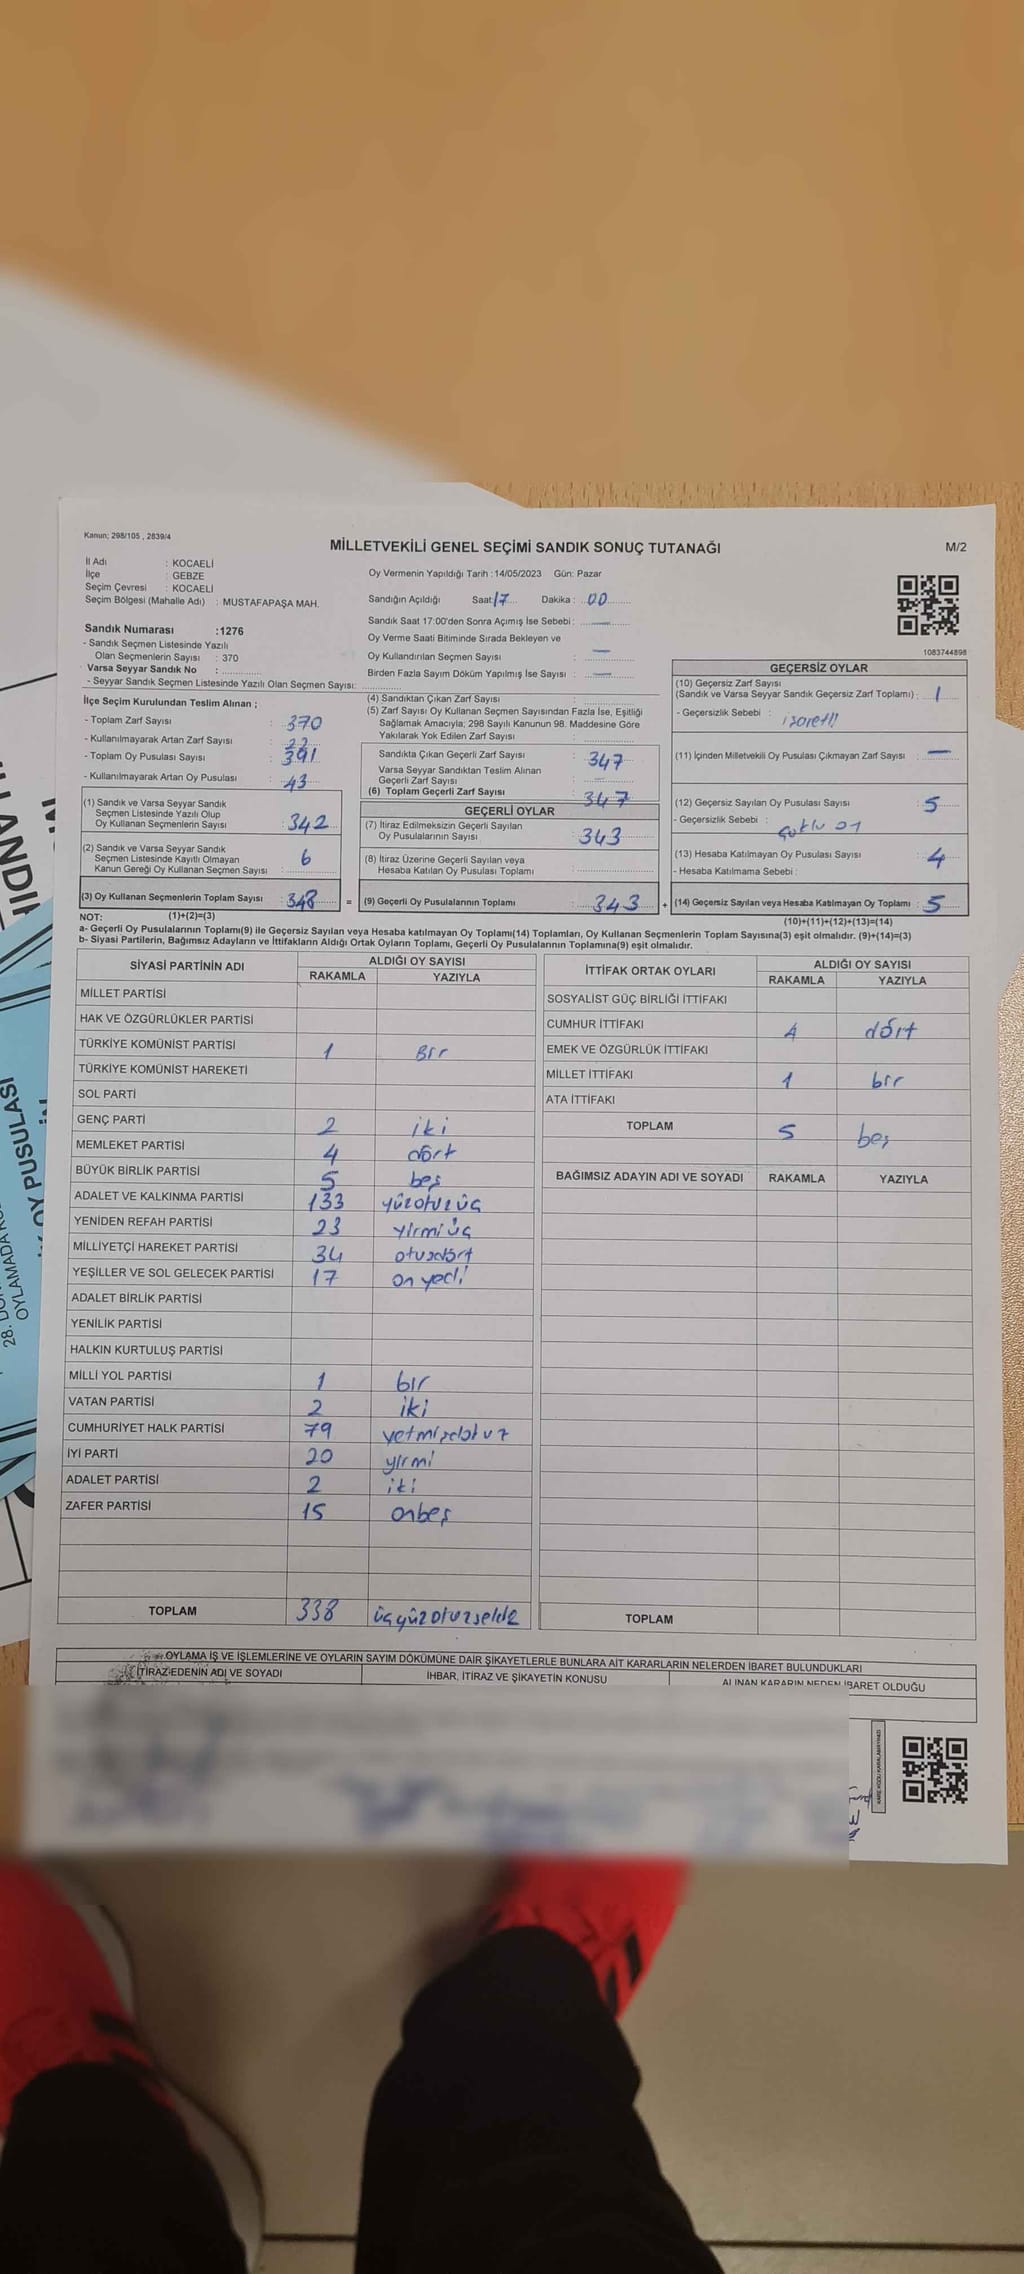 Kanun; 298/105 , 2839/4
MİLLETVEKİLİ GENEL SEÇİMİ SANDIK SONUÇ TUTANAĞI
M/2
İl Adı : KOCAELİ
İlçe : GEBZE
Seçim Çevresi : KOCAELİ
Seçim Bölgesi (Mahalle Adı) : MUSTAFAPAŞA MAH.
Sandık Numarası :1276
- Sandık Seçmen Listesinde Yazılı
Olan Seçmenlerin Sayısı : 370
Varsa Seyyar Sandık No :
- Seyyar Sandık Listesinde Yazılı Olan Seçmen Sayısı:
Oy Vermenin Yapıldığı Tarih :14/05/2023 Gün: Pazar
Sandığın Açıldığı Saat: 17 Dakika : 00
Sandık Saat 17:00'den Sonra Açımış İse Sebebi : —
Oy Verme Saati Bitiminde Sırada Bekleyen ve
Oy Kullandırılan Seçmen Sayısı : —
Birden Fazla Sayım Döküm Yapılmış İse Sayısı : —
1083744898
İlçe Seçim Kurulundan Teslim Alınan ;
- Toplam Zarf Sayısı : 370
- Kullanılmayarak Artan Zarf Sayısı : 22
- Toplam Oy Pusulası Sayısı : 391
- Kullanılmayarak Artan Oy Pusulası : 43
(1) Sandık ve Varsa Seyyar Sandık
Seçmen Listesinde Yazılı Olup
Oy Kullanan Seçmenlerin Sayısı : 342
(2) Sandık ve Varsa Seyyar Sandık
Seçmen Listesinde Kayıtlı Olmayan
Kanun Gereği Oy Kullanan Seçmen Sayısı : 6
(3) Oy Kullanan Seçmenlerin Toplam Sayısı : 348 =
(4) Sandıktan Çıkan Zarf Sayısı :
(5) Zarf Sayısı Oy Kullanan Seçmen Sayısından Fazla İse, Eşitliği
Sağlamak Amacıyla; 298 Sayılı Kanunun 98. Maddesine Göre
Yakılarak Yok Edilen Zarf Sayısı :
Sandıkta Çıkan Geçerli Zarf Sayısı : 347
Varsa Seyyar Sandıktan Teslim Alınan
Geçerli Zarf Sayısı :
(6) Toplam Geçerli Zarf Sayısı : 347
GEÇERLİ OYLAR
(7) İtiraz Edilmeksizin Geçerli Sayılan
Oy Pusulalarının Sayısı : 343
(8) İtiraz Üzerine Geçerli Sayılan veya
Hesaba Katılan Oy Pusulası Toplamı :
(9) Geçerli Oy Pusulalarının Toplamı : 343 +
GEÇERSİZ OYLAR
(10) Geçersiz Zarf Sayısı
(Sandık ve Varsa Seyyar Sandık Geçersiz Zarf Toplamı) : 1
- Geçersizlik Sebebi : işaretli
(11) İçinden Milletvekili Oy Pusulası Çıkmayan Zarf Sayısı : —
(12) Geçersiz Sayılan Oy Pusulası Sayısı : 5
- Geçersizlik Sebebi : çoklu oy
(13) Hesaba Katılmayan Oy Pusulası Sayısı : 4
- Hesaba Katılmama Sebebi :
(14) Geçersiz Sayılan veya Hesaba Katılmayan Oy Toplamı : 5
NOT: (1)+(2)=(3)
(10)+(11)+(12)+(13)=(14)
a- Geçerli Oy Pusulalarının Toplamı(9) ile Geçersiz Sayılan veya Hesaba katılmayan Oy Toplamı(14) Toplamları, Oy Kullanan Seçmenlerin Toplam Sayısına(3) eşit olmalıdır. (9)+(14)=(3)
b- Siyasi Partilerin, Bağımsız Adayların ve İttifakların Aldığı Ortak Oyların Toplamı, Geçerli Oy Pusulalarının Toplamına(9) eşit olmalıdır.
SİYASİ PARTİNİN ADI
ALDIĞI OY SAYISI
RAKAMLA YAZIYLA
MİLLET PARTİSİ
HAK VE ÖZGÜRLÜKLER PARTİSİ
TÜRKİYE KOMÜNİST PARTİSİ 1 Bir
TÜRKİYE KOMÜNİST HAREKETİ
SOL PARTİ
GENÇ PARTİ 2 iki
MEMLEKET PARTİSİ 4 dört
BÜYÜK BİRLİK PARTİSİ 5 beş
ADALET VE KALKINMA PARTİSİ 133 yüzotuzüç
YENİDEN REFAH PARTİSİ 23 yirmiüç
MİLLİYETÇİ HAREKET PARTİSİ 34 otuzdört
YEŞİLLER VE SOL GELECEK PARTİSİ 17 on yedi
ADALET BİRLİK PARTİSİ
YENİLİK PARTİSİ
HALKIN KURTULUŞ PARTİSİ
MİLLİ YOL PARTİSİ 1 bir
VATAN PARTİSİ 2 iki
CUMHURİYET HALK PARTİSİ 79 yetmişdokuz
İYİ PARTİ 20 yirmi
ADALET PARTİSİ 2 iki
ZAFER PARTİSİ 15 onbeş
TOPLAM 338 üçyüzotuzsekiz
İTTİFAK ORTAK OYLARI
ALDIĞI OY SAYISI
RAKAMLA YAZIYLA
SOSYALİST GÜÇ BİRLİĞİ İTTİFAKI
CUMHUR İTTİFAKI 4 dört
EMEK VE ÖZGÜRLÜK İTTİFAKI
MİLLET İTTİFAKI 1 bir
ATA İTTİFAKI
TOPLAM 5 beş
BAĞIMSIZ ADAYIN ADI VE SOYADI RAKAMLA YAZIYLA
TOPLAM
OYLAMA İŞ VE İŞLEMLERİNE VE OYLARIN SAYIM DÖKÜMÜNE DAİR ŞİKAYETLERLE BUNLARA AİT KARARLARIN NELERDEN İBARET BULUNDUKLARI
İTİRAZ EDENİN ADI VE SOYADI
İHBAR, İTİRAZ VE ŞİKAYETİN KONUSU
ALINAN KARARIN NEDEN İBARET OLDUĞU
OY PUSULASI